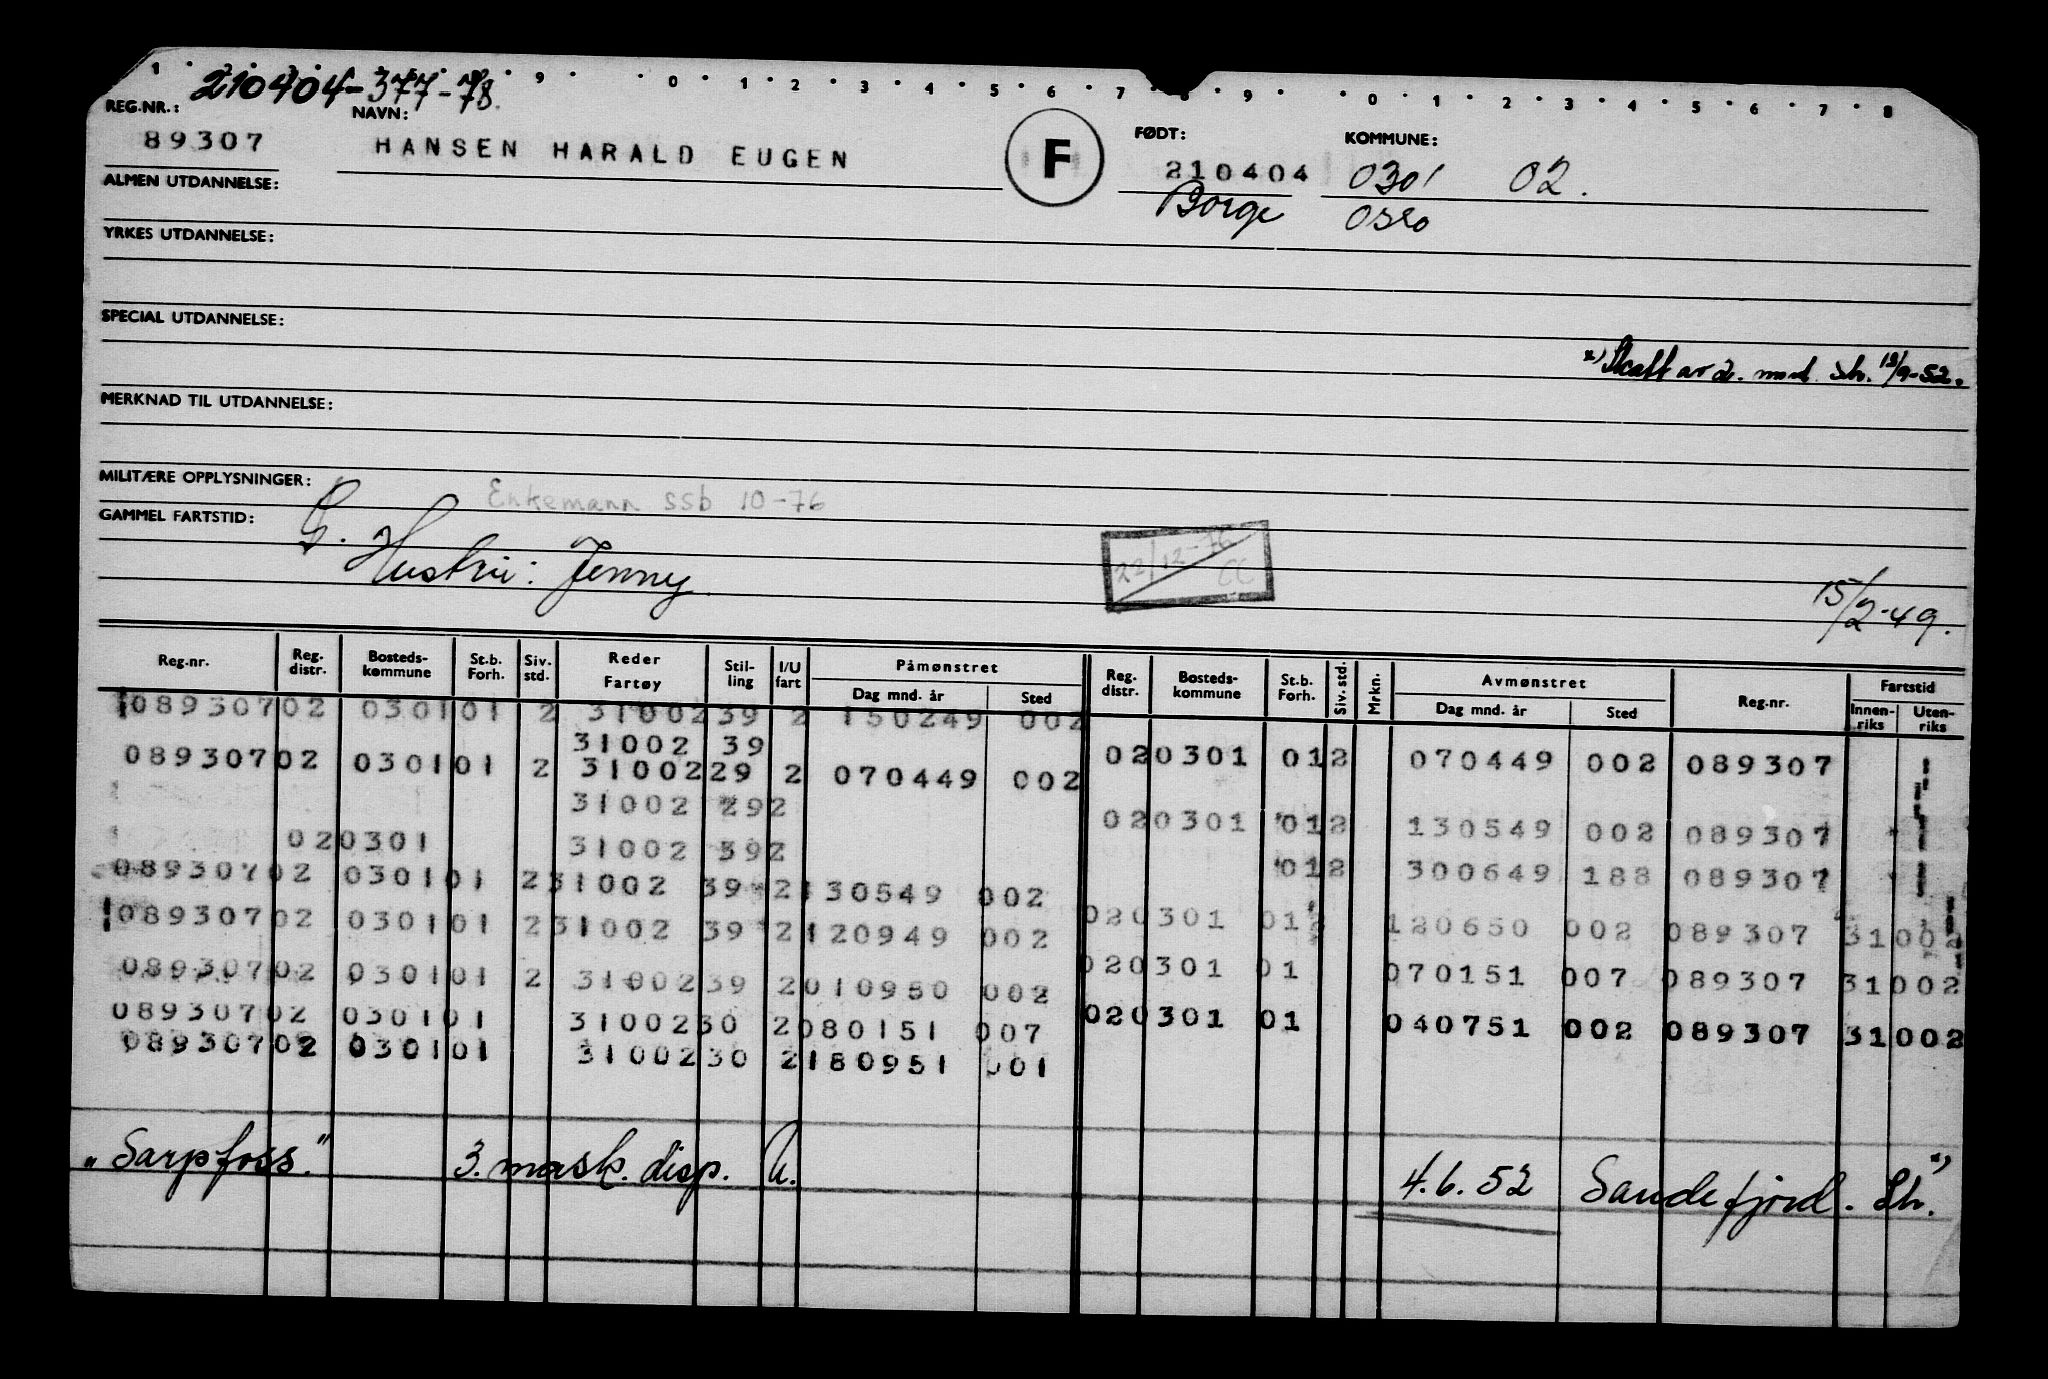 1 9 0 1 2 3 4 5 6 7 8 9 0 1 2 3 4 5 6 7 8
210404-377-78.
REG.NR.: NAVN: FØDT: KOMMUNE:
89307 HANSEN HARALD EUGEN F 210404 0301 02.
Borge Oslo
ALMEN UTDANNELSE:
YRKES UTDANNELSE:
SPECIAL UTDANNELSE:
x) Skatt av 2. mnd. Sh. 19/9-52.
MERKNAD TIL UTDANNELSE:
MILITÆRE OPPLYSNINGER:
Enkemann ssb 10-76
GAMMEL FARTSTID: G. Hustru: Jenny.
22/12-76 CC
15/2-49.
Reg.nr. Reg. distr. Bosteds-kommune St.b. Forh. Siv. std. Reder Fartøy Stil-ling I/U fart Påmønstret Dag mnd. år Sted Reg. distr. Bosteds-kommune St.b. Forh. Siv. std. Mrkn. Avmønstret Dag mnd. år Sted Reg.nr. Fartstid Innen-riks Uten-riks
089307 02 0301 01 2 31002 39 2 150249 002
31002 39 02 0301 01 2 070449 002 089307
089307 02 0301 01 2 31002 29 2 070449 002
31002 29 2 02 0301 01 2 130549 002 089307
02 0301 31002 39 2 01 2 300649 188 089307
089307 02 0301 01 2 31002 39 2 130549 002
089307 02 0301 01 2 31002 39 2 120949 002 02 0301 01 2 120650 002 089307 31002
089307 02 0301 01 2 31002 39 2 010950 002 02 0301 01 070151 007 089307 31002
089307 02 0301 01 31002 30 2 080151 007 02 0301 01 040751 002 089307 31002
089307 02 0301 01 31002 30 2 180951 001
"Sarpfoss." 3. mask. disp. U. 4.6.52 Sandefjord. Sh. x)